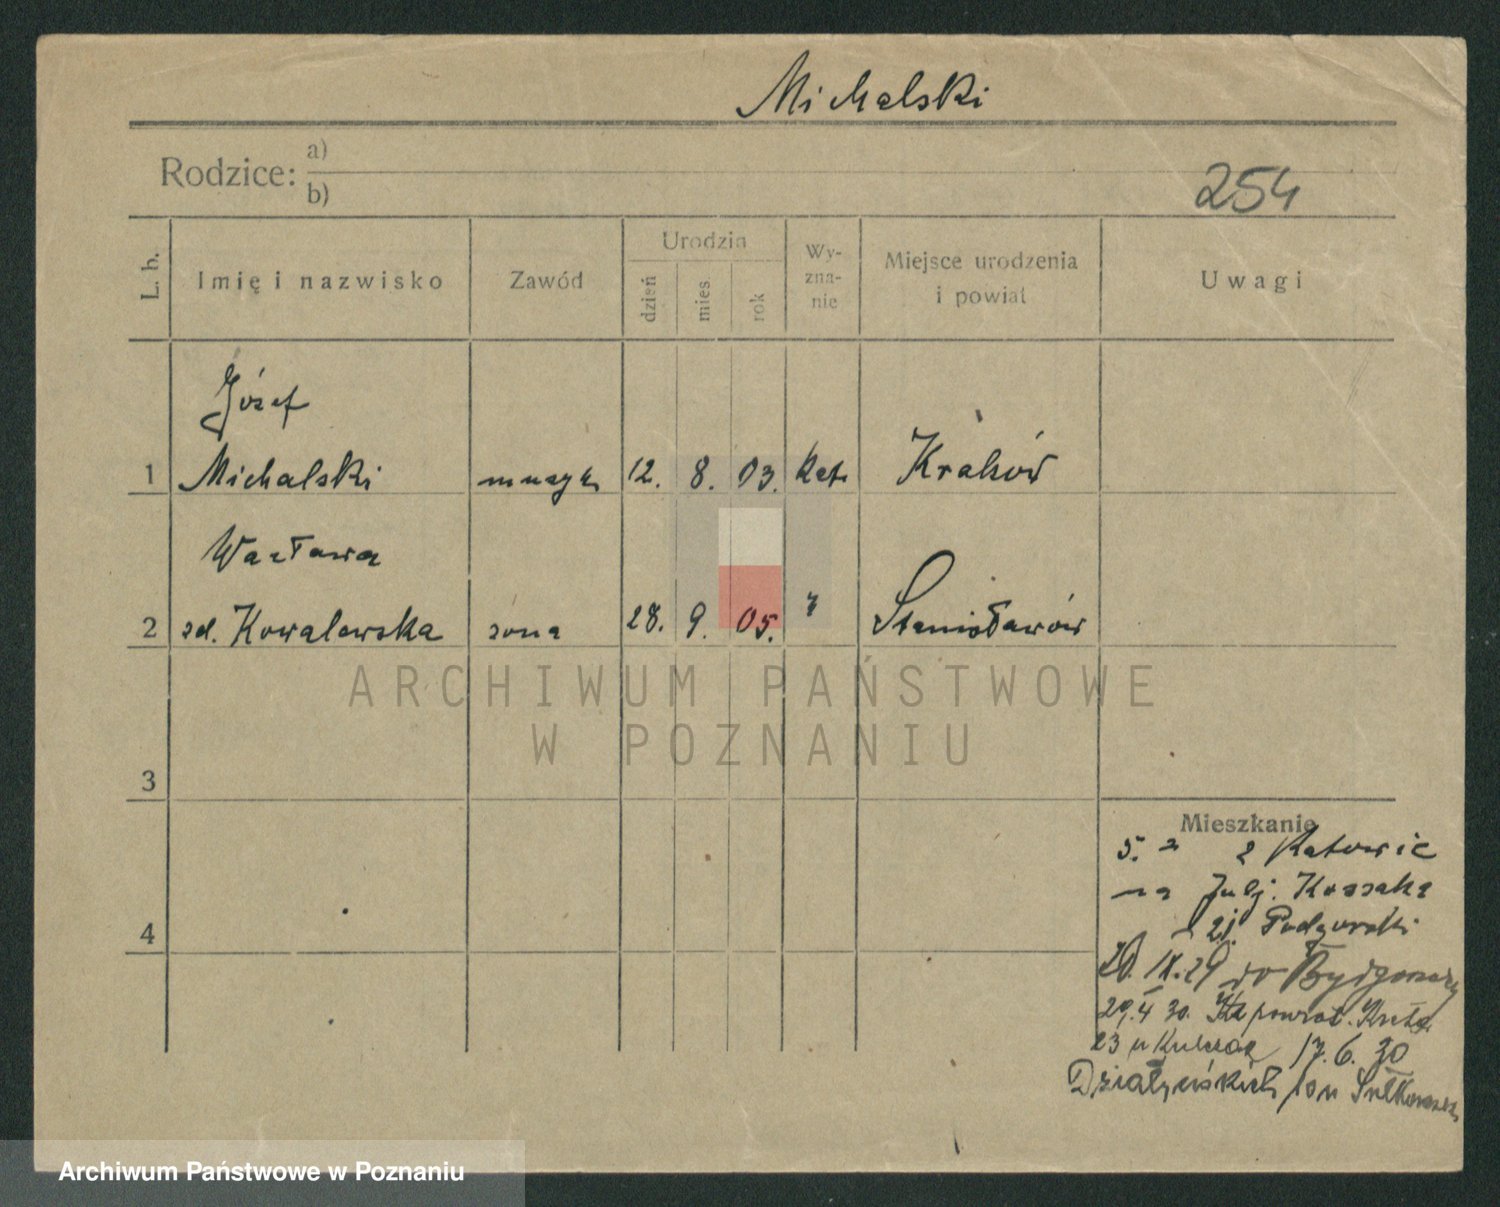 Michalski
Rodzice: a)
b)
254
L. b. Imię i nazwisko Zawód Urodzin dzień mies. rok Wy-zna-nie Miejsce urodzenia i powiat Uwagi
Józef
1 Michalski muzyk 12. 8. 03. kat. Kraków
Wacława
2 zd. Kowalewska żona 28. 9. 05. " Stanisławów
ARCHIWUM PAŃSTWOWE
W POZNANIU
3
4
Mieszkanie
5. z Katowic
na Julj. Kossaka
21 Podgórski
20. IX. 29 do Bydgoszczy
29. 4 30. powrot. Kręta
23 u 17. 6. 30
Działyńskich 10 u
Archiwum Państwowe w Poznaniu